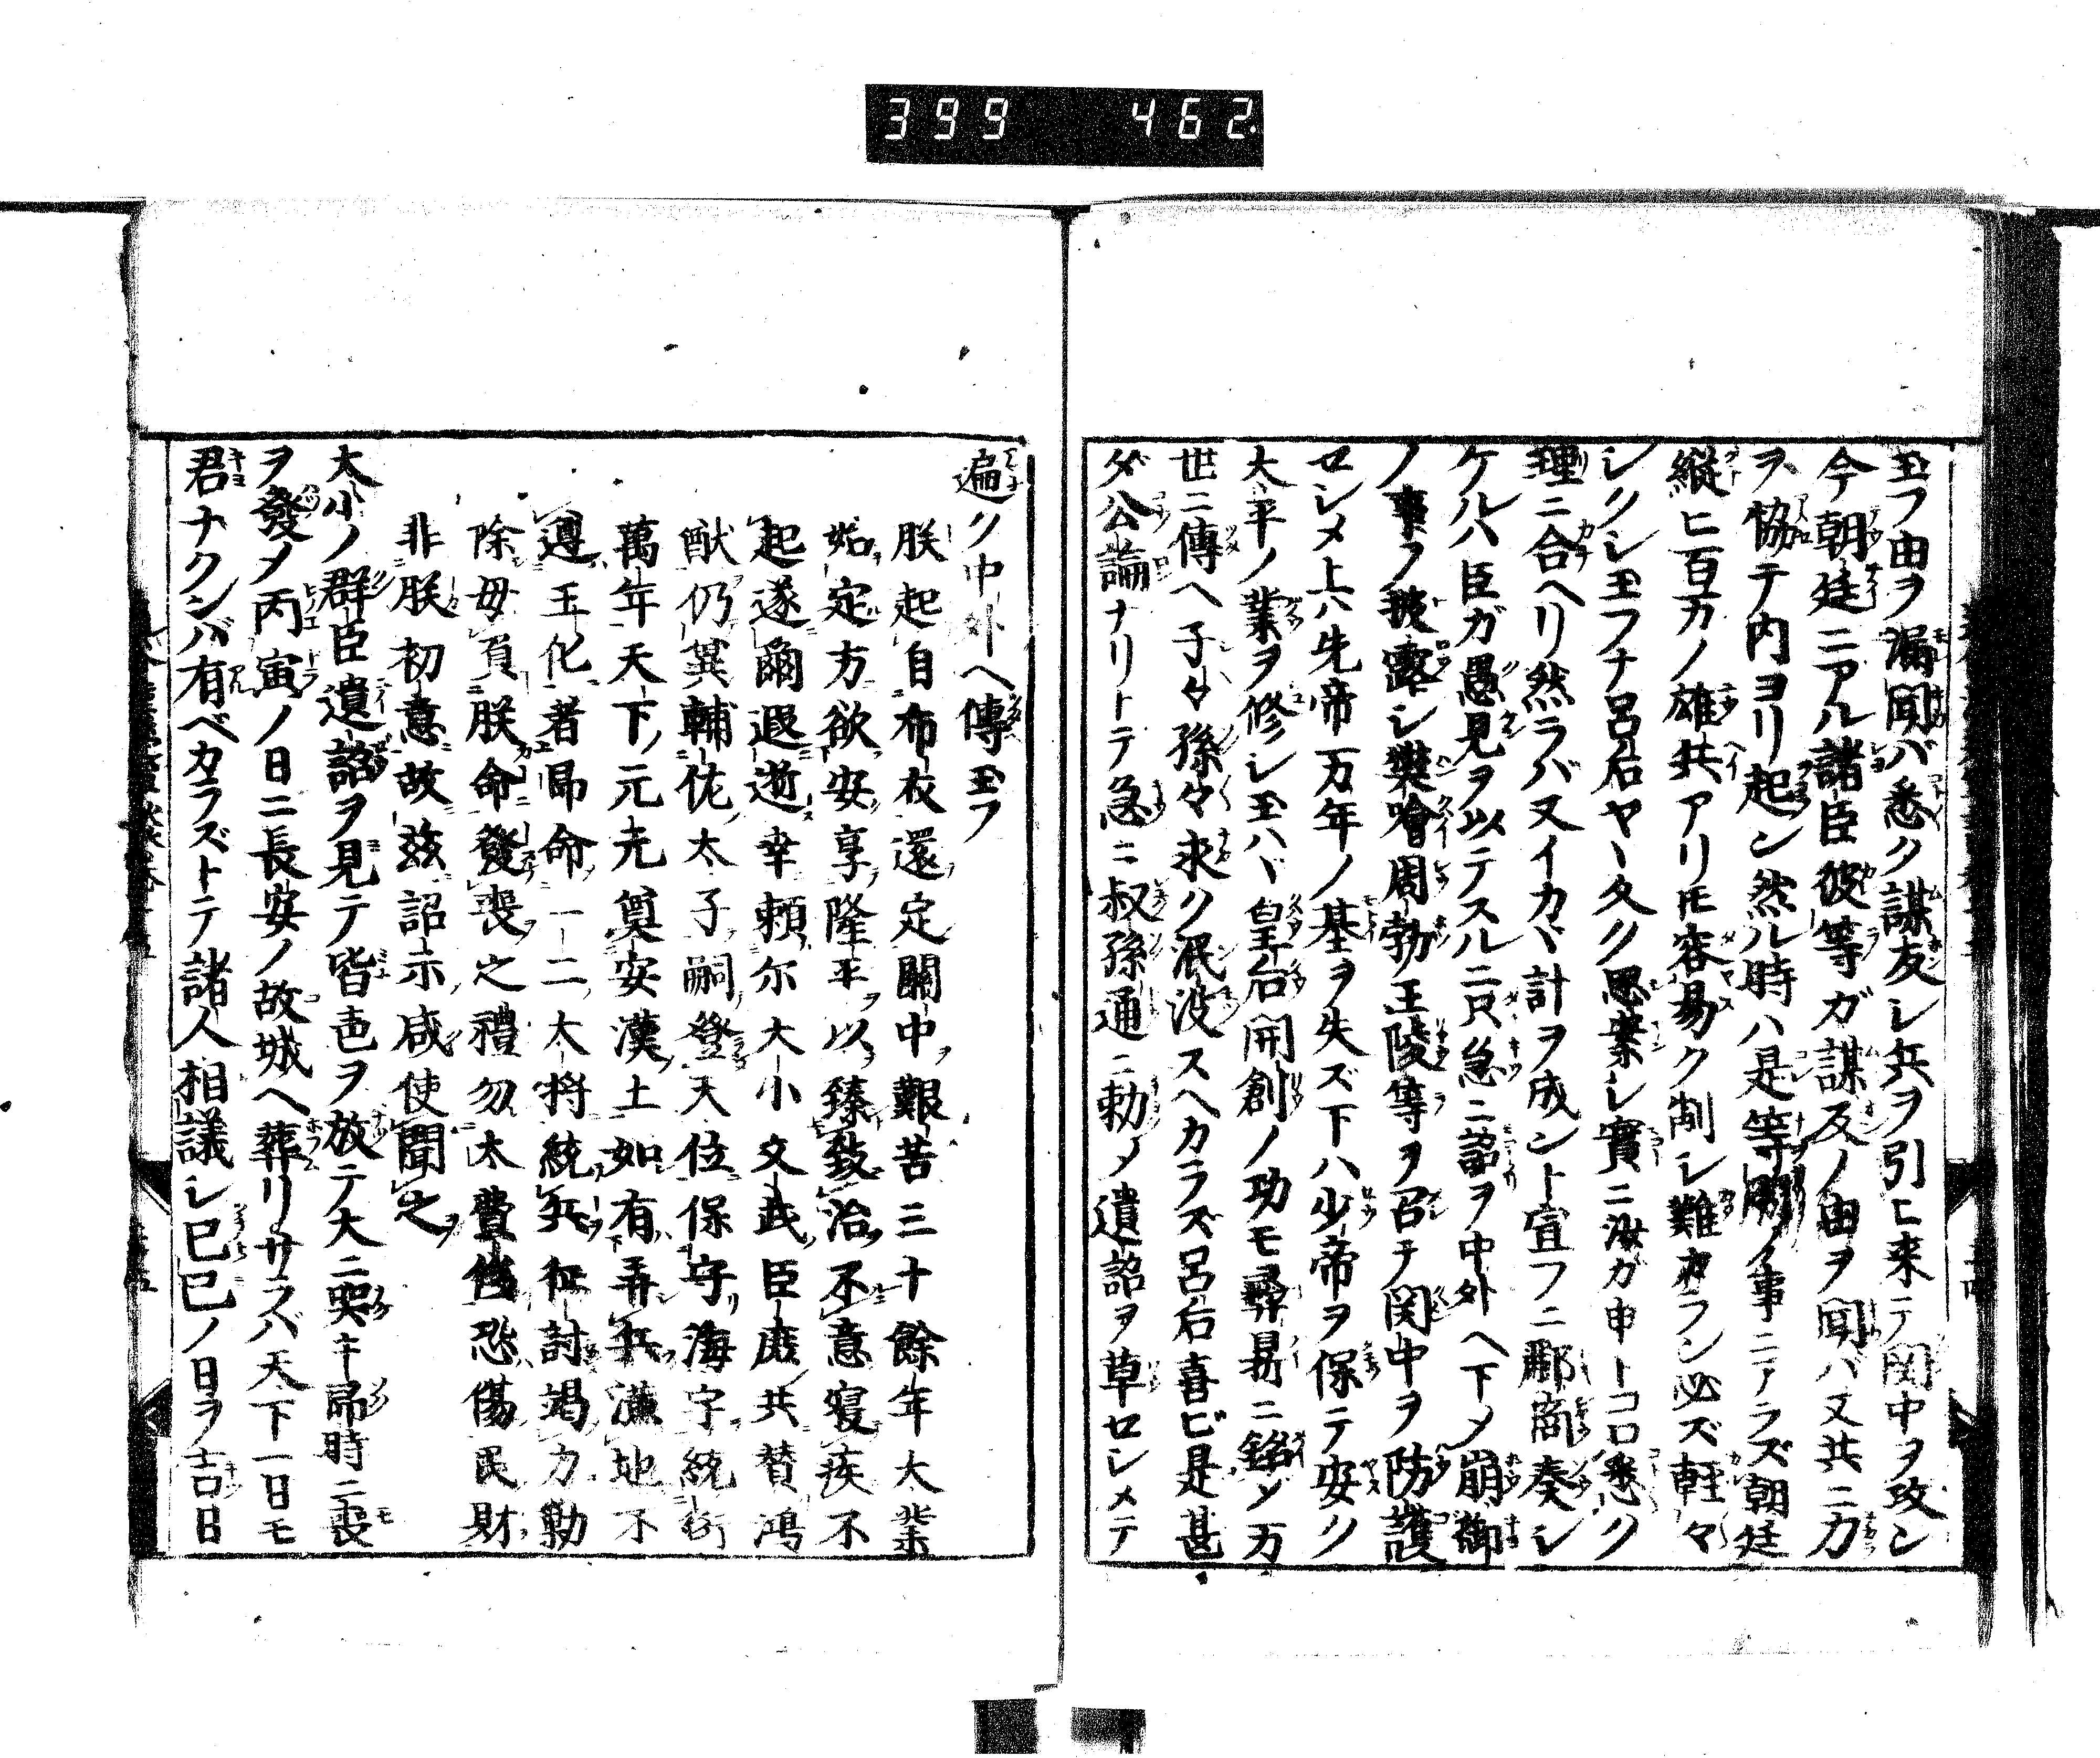 399 462
玉フ由ヲ漏聞バ悉ク謀友シ兵ヲ引ヒ来テ関中ヲ攻ン
今朝廷ニアル諸臣彼等ガ謀反ノ由ヲ聞バ又共ニ力
ヲ協テ内ヨリ起ン然ル時ハ是等剛ノ事ニアラズ朝廷
縦ヒ百万ノ雄兵アリ𪜈容易ク制シ難カラン必ズ軽々
シクシ玉フナ呂后ヤヽ久ク思案シ實ニ汝ガ申トコロ悉ク
理ニ合ヘリ然ラバ又イカヾ計ヲ成ント宣フニ酈商奏シ
ケルハ臣ガ愚見ヲ以テスルニ只急ニ詔ヲ中外ヘ下メ崩御
ノ事ヲ披露シ樊噲周勃王陵等ヲ召テ関中ヲ防護
セシメ上ハ先帝万年ノ基ヲ失ズ下ハ少帝ヲ保テ安ク
太平ノ業ヲ修シ玉ハヾ皇后開創ノ功モ彜昜ニ銘メ万
世ニ傳ヘ子々孫々永ク泯没スヘカラズ呂后喜ビ是甚
ダ公論ナリトテ急ニ叔孫通ニ勅メ遺詔ヲ草セシメテ
遍ク中外ヘ傳玉フ
朕起自布衣還定關中艱苦三十餘年大業
始定方欲安享隆平以臻致治不意寝疾不
起遂爾遐逝幸頼尓大小文武臣庶共賛鴻
猷仍冀輔佐太子嗣登天位保守海宇統衍
萬年天下元元奠安漢土如有弄兵潢地不
遵王化者即命一二大将統兵征討竭力勦
除毋負朕命發喪之禮勿太費侈恐傷民財
非朕初意故玆詔示咸使聞之
大小ノ群臣遺詔ヲ見テ皆色ヲ放テ大ニ哭キ即時ニ喪
ヲ發メ丙寅ノ日ニ長安ノ故城ヘ葬リサラバ天下一日モ
君ナクンバ有ベカラズトテ諸人相議シ己巳ノ日ヲ吉日